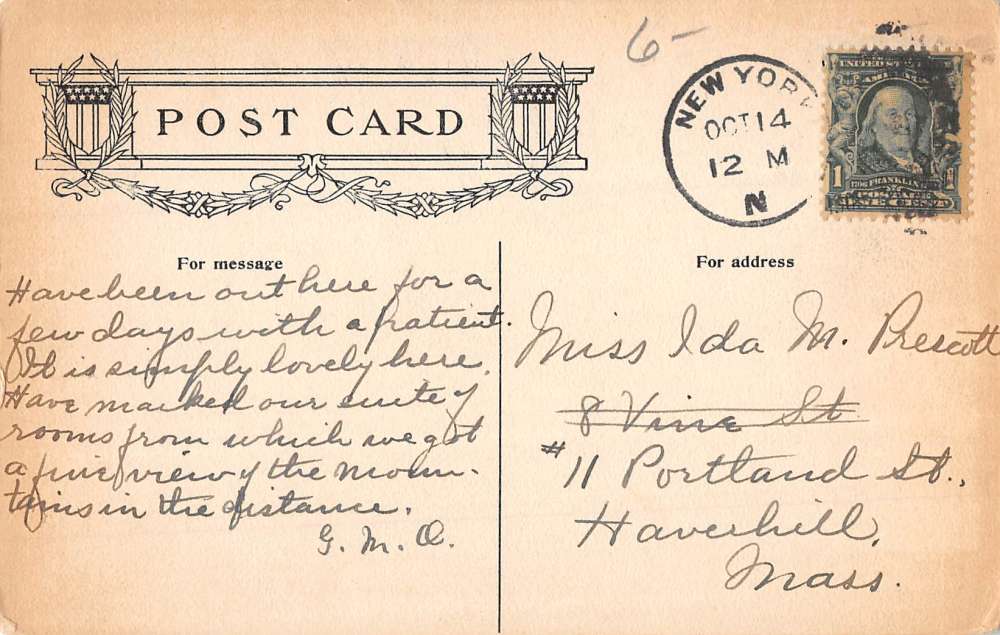 6-
POST CARD
NEW YORK
OCT 14
12 M
N
UNITED STATES
OF AMERICA
1 1706 FRANKLIN 1790
ONE CENT
For message
Have been out here for a
few days with a patient.
It is simply lovely here.
Have marked our suite of
rooms from which we got
a fine view of the moun-
tains in the distance.
G. M. O.
For address
Miss Ida M. Prescott
8 Vine St
#11 Portland St.,
Haverhill,
Mass.